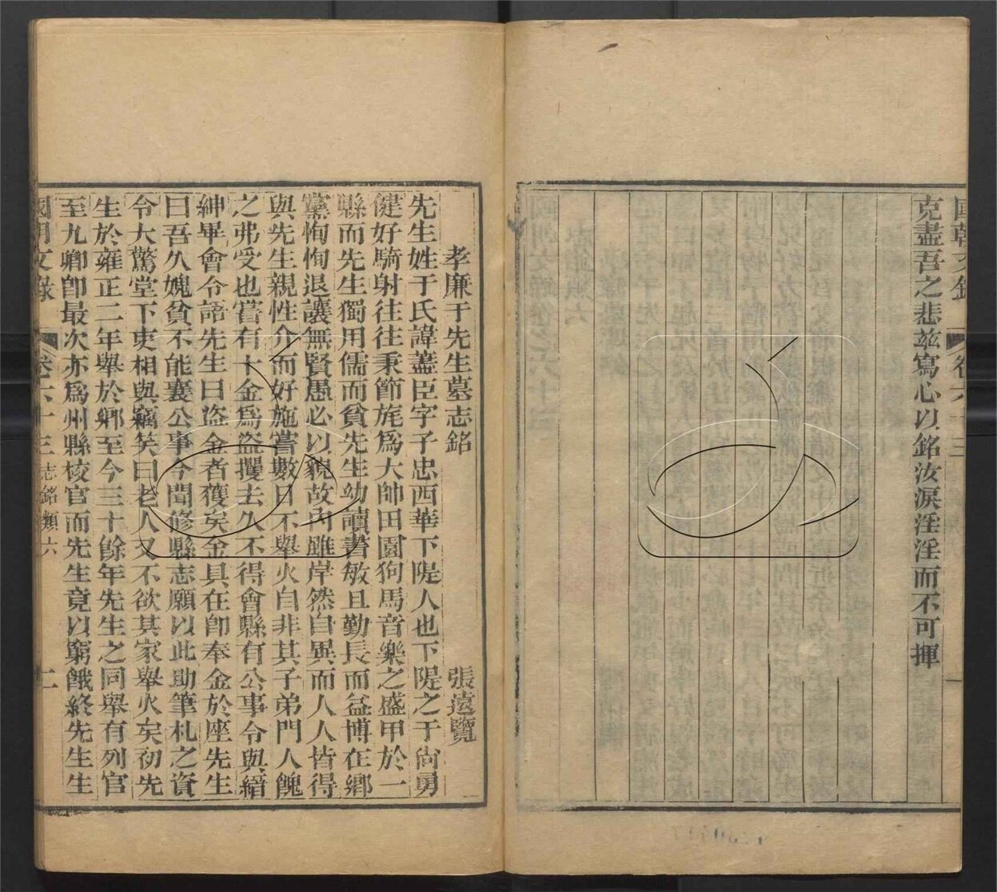 國朝文錄 卷六十三
克盡吾之悲茲寫心以銘汝淚淫淫而不可揮
孝廉于先生墓志銘 張遠覽
先生姓于氏諱藎臣字子忠西華下隄人也下隄之于尙勇
健好騎射往往秉節旄爲大帥田園狗馬音樂之盛甲於一
縣而先生獨用儒而貧先生幼讀書敏且勤長而益博在鄉
黨恂恂退讓無賢愚必以貌故内雖岸然自異而人人皆得
與先生親性介而好施嘗數日不舉火自非其子弟門人餽
之弗受也嘗有十金爲盜攫去久不得會縣有公事令與縉
紳畢會令語先生曰盜金者獲矣金具在卽奉金於座先生
曰吾久媿貧不能襄公事今聞修縣志願以此助筆札之資
令大驚堂下吏相與竊笑曰老人又不欲其家舉火矣初先
生於雍正二年舉於鄉至今三十餘年先生之同舉有列官
至九卿卽最次亦爲州縣校官而先生竟以窮餓終先生生
國朝文錄 卷六十三 志銘類六 二